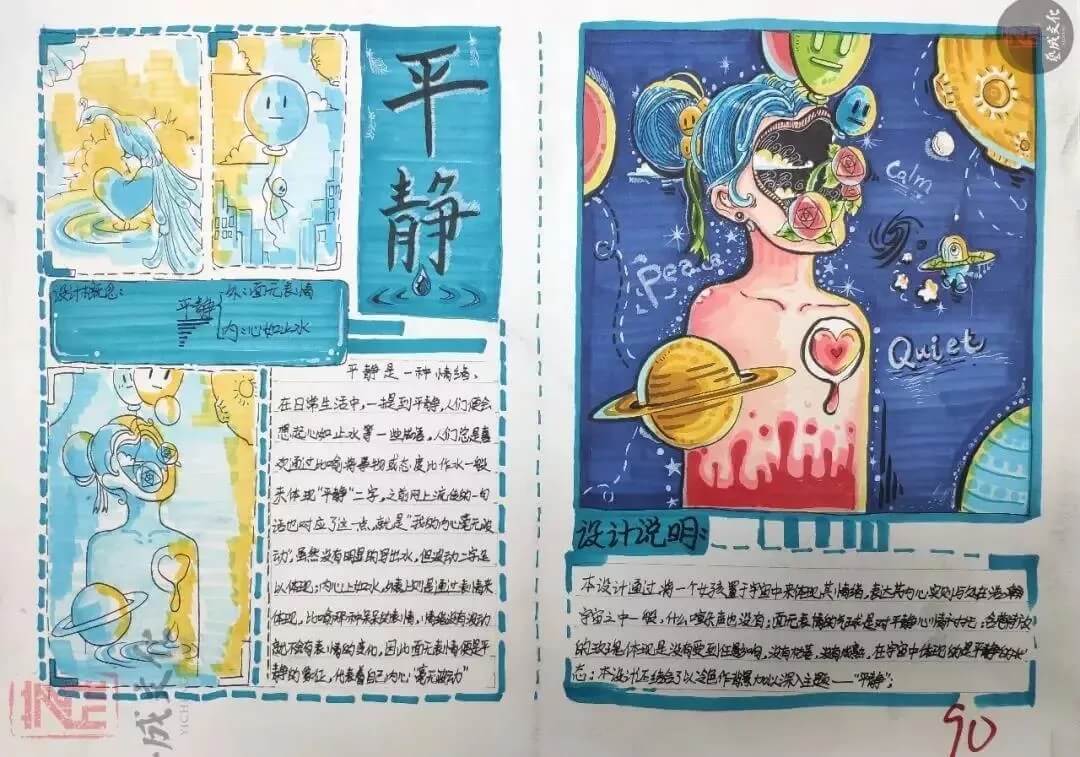 平
静
设计概念：
平静
外：面无表情
内：心如止水
平静是一种情绪、
在日常生活中，一提到平静，人们便会
想起心如止水等一些成语。人们总是喜
欢通过比喻将事物或态度比作水一般
来体现“平静”二字，之前网上流传的一句
话也对应了这一点，就是“我的内心毫无波
动”，虽然没有明显的写出水，但波动二字足
以体现；内心上如水，外表上则是通过表情来
体现，比喻那种呆呆的表情，情绪没有波动
就不会有表情的变化，因此面无表情便是平
静的象征，代表着自己内心“毫无波动”
Calm
Peace
Quiet
设计说明：
本设计通过将一个女孩置于宇宙中来体现其情绪，表达其内心实则与处在
宇宙之中一般，什么喧杂声也没有；面无表情的气球是对平静心情的
的玫瑰体现是没有受到任何影响，没有枯萎，没有腐败，在宇宙中体现的是平静的状
态；本设计还结合了以冷色作背景加以深入主题——“平静”；
90
艺成文化
成文化
YICH